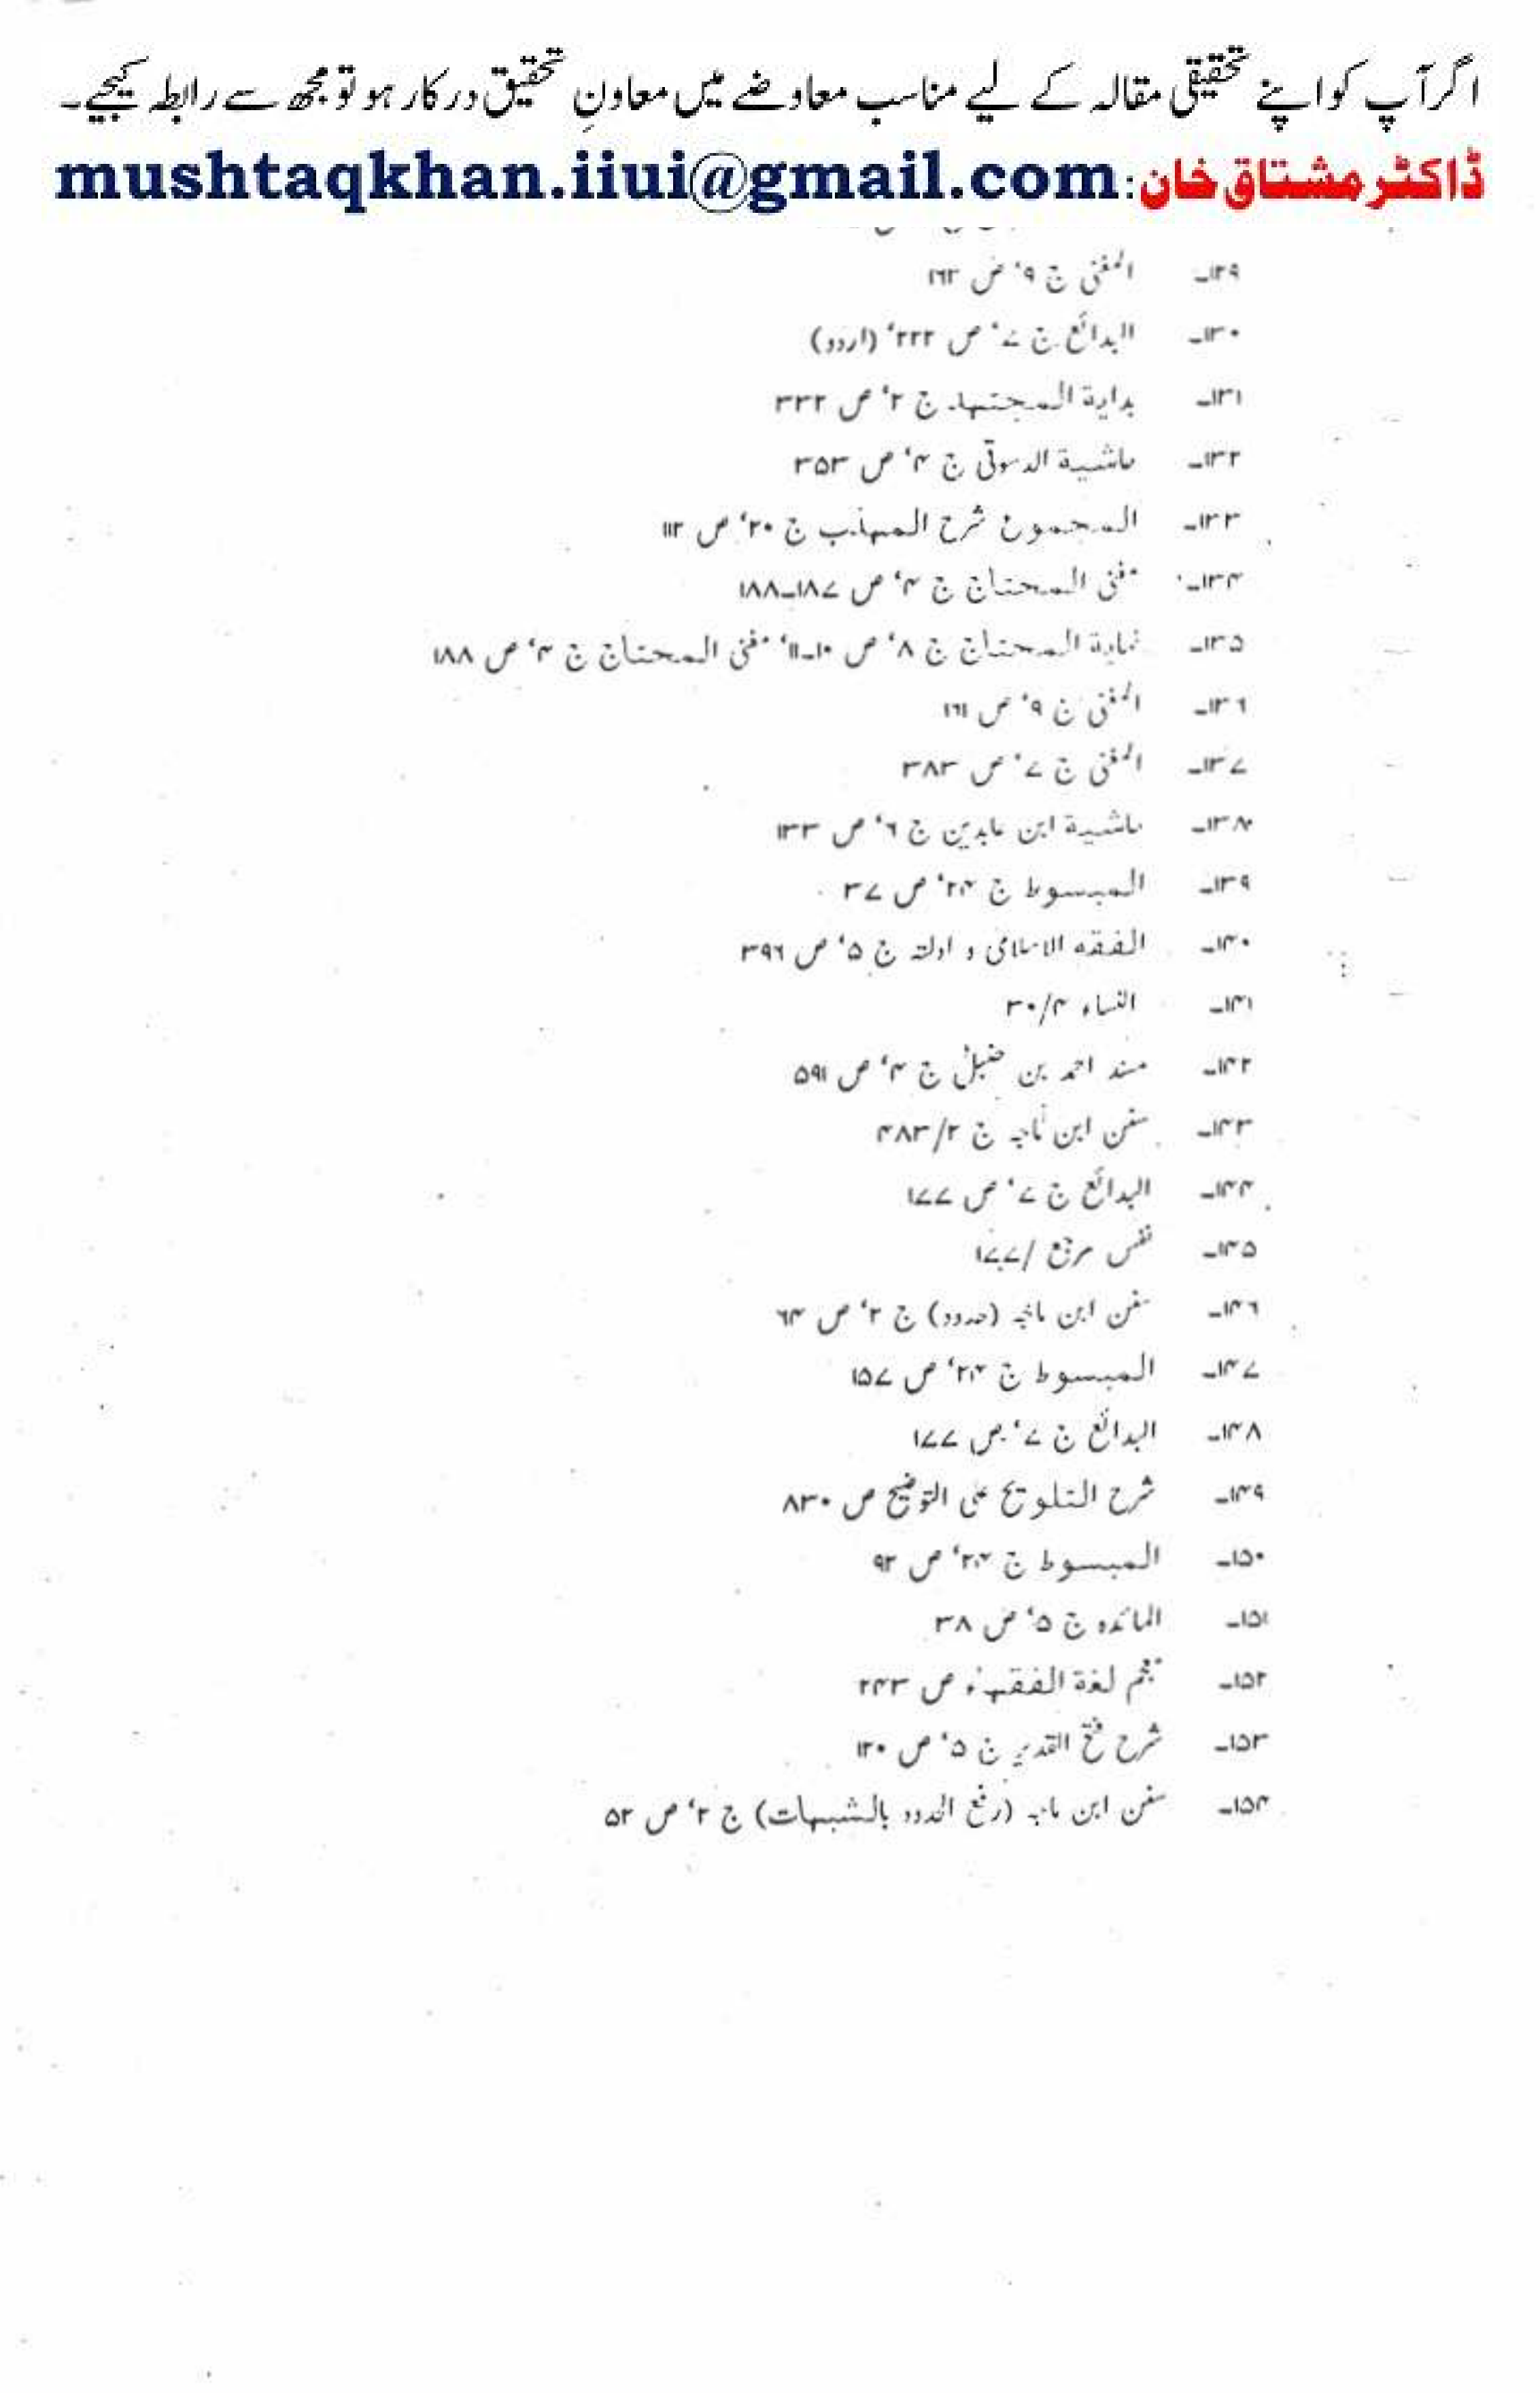 اگر آپ کو اپنے تحقیقی مقالہ کے لیے مناسب معاوضے میں معاونِ تحقیق درکار ہو تو مجھ سے رابطہ کیجیے۔
ڈاکٹر مشتاق خان: mushtaqkhan.iiui@gmail.com
۱۲۹۔ المغنی ج ۹‘ ص ۱۶۳
۱۳۰۔ البدائع ج ۷‘ ص ۲۲۲‘ (اردو)
۱۳۱۔ بدایة المجتہد ج ۲‘ ص ۳۳۲
۱۳۲۔ حاشیة الدسوقی ج ۴‘ ص ۳۵۳
۱۳۳۔ المجموع شرح المہذب ج ۲۰‘ ص ۱۱۳
۱۳۴۔ مغنی المحتاج ج ۴‘ ص ۱۸۷۔۱۸۸
۱۳۵۔ نہایة المحتاج ج ۸‘ ص ۱۰۔۱۱‘ مغنی المحتاج ج ۴‘ ص ۱۸۸
۱۳۶۔ المغنی ج ۹‘ ص ۱۶۱
۱۳۷۔ المغنی ج ۷‘ ص ۳۸۳
۱۳۸۔ حاشیة ابن عابدین ج ۶‘ ص ۱۳۳
۱۳۹۔ المبسوط ج ۲۴‘ ص ۳۷
۱۴۰۔ الفقه الاسلامی و ادلته ج ۵‘ ص ۳۹۶
۱۴۱۔ النساء ۳۰/۴
۱۴۲۔ مسند احمد بن حنبلؒ ج ۴‘ ص ۵۹۱
۱۴۳۔ سنن ابن ماجہ ج ۴۸۳/۲
۱۴۴۔ البدائع ج ۷‘ ص ۱۷۷
۱۴۵۔ نفس مرجع /۱۷۷
۱۴۶۔ سنن ابن ماجہ (حدود) ج ۲‘ ص ۶۴
۱۴۷۔ المبسوط ج ۲۴‘ ص ۱۵۷
۱۴۸۔ البدائع ج ۷‘ ص ۱۷۷
۱۴۹۔ شرح التلویح علی التوضیح ص ۸۳۰
۱۵۰۔ المبسوط ج ۲۴‘ ص ۹۲
۱۵۱۔ المائدہ ج ۵‘ ص ۳۸
۱۵۲۔ معجم لغة الفقہاء ص ۲۴۳
۱۵۳۔ شرح فتح القدیر ج ۵‘ ص ۱۲۰
۱۵۴۔ سنن ابن ماجہ (رفع الحدود بالشبہات) ج ۲‘ ص ۵۲